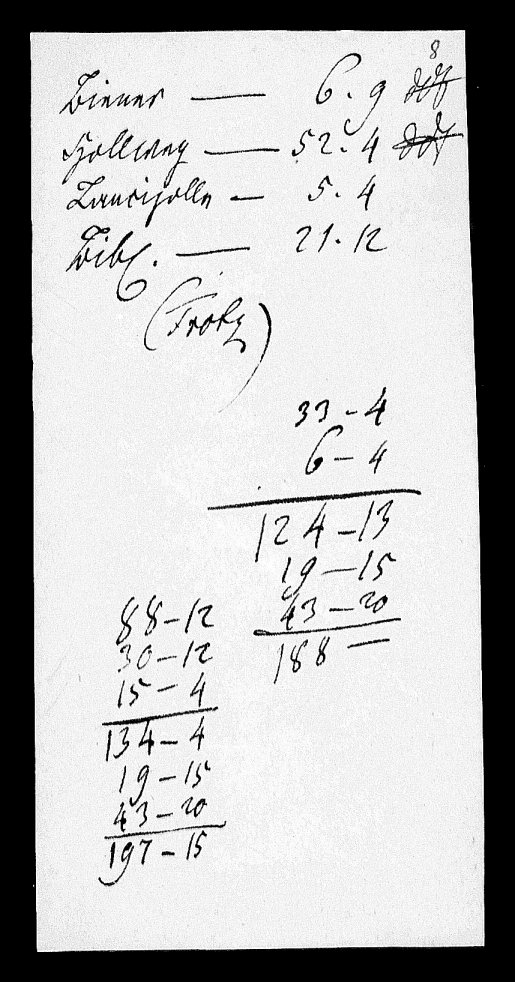 8
Biener — 6. 9
Hollweg — 52. 4
Lancizolle — 5. 4
Bibl. — 21. 12
33 - 4
6 - 4
124 - 13
19 - 15
43 - 20
188 —
88 - 12
30 - 12
15 - 4
134 - 4
19 - 15
43 - 20
197 - 15